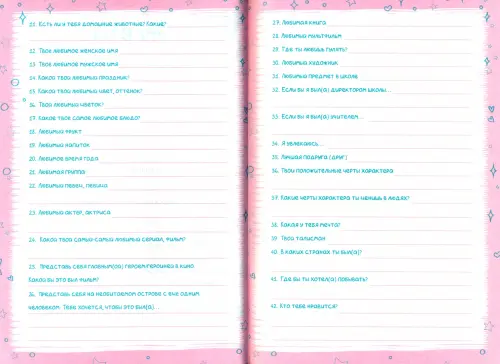 11. Есть ли у тебя домашние животные? Какие?
12. Твое любимое женское имя
13. Твое любимое мужское имя
14. Какой твой любимый праздник?
15. Какой твой любимый цвет, оттенок?
16. Твой любимый цветок?
17. Какое твое самое любимое блюдо?
18. Любимый фрукт
19. Любимый напиток
20. Любимое время года
21. Любимая группа
22. Любимый певец, певица
23. Любимый актер, актриса
24. Какой твой самый-самый любимый сериал, фильм?
25. Представь себя главным(ой) героем/героиней в кино.
Какой бы это был фильм?
26. Представь себя на необитаемом острове с еще одним
человеком. Тебе хочется, чтобы это был(а)...
27. Любимая книга
28. Любимый мультфильм
29. Где ты любишь гулять?
30. Любимый художник
31. Любимый предмет в школе
32. Если бы я был(а) директором школы...
33. Если бы я был(а) учителем...
34. Я увлекаюсь...
35. Лучшая подруга (друг)
36. Твои положительные черты характера
37. Какие черты характера ты ценишь в людях?
38. Какая у тебя мечта?
39. Твой талисман
40. В каких странах ты был(а)?
41. Где бы ты хотел(а) побывать?
42. Кто тебе нравится?